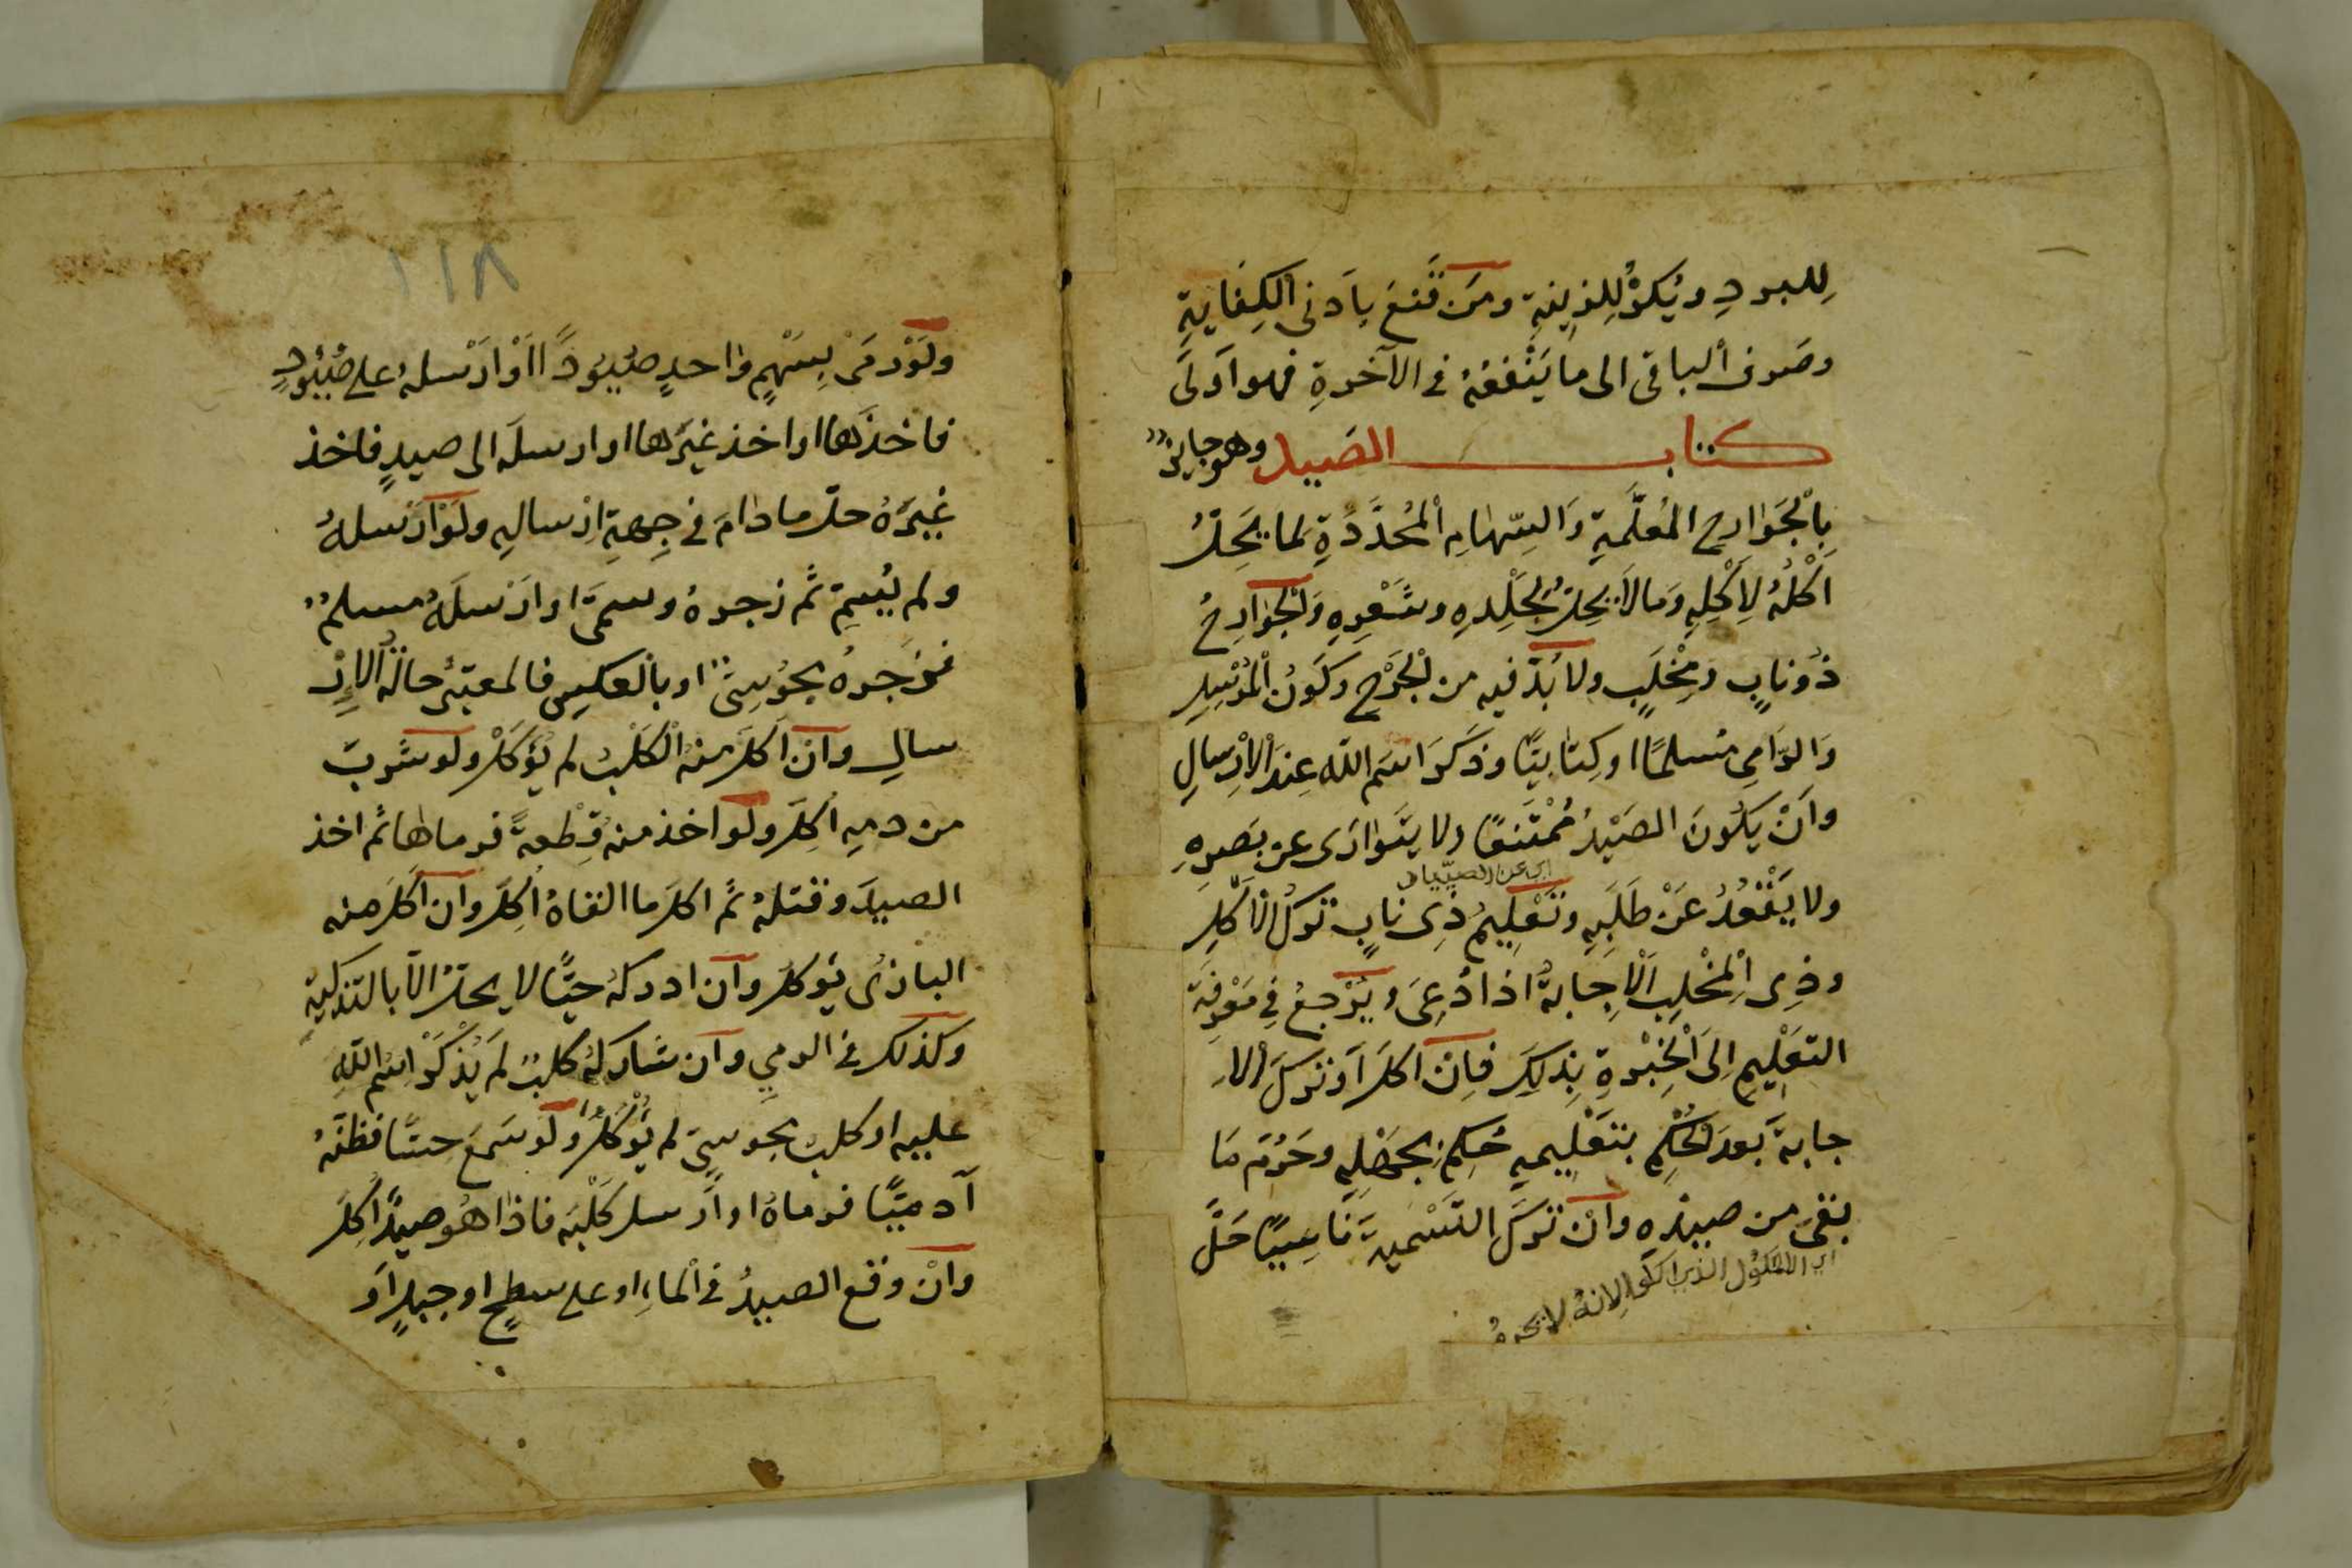 لِلبردِ ويُكرَهُ لِلزينةِ ومَن قَنعَ بِاَدنى الكِفايةِ
وصَرفَ الباقى الى ما يَنْفعُهُ فى الآخرةِ فهو اَولَى
كتاب الصَيد وهو جايزٌ
بِالْجَوارحِ المُعَلَّمةِ وَالسِّهامِ الْمُحَدَّدةِ لما يَحِلُّ
اَكْلُهُ لِاَكْلِهِ وَما لاَ يحِلُّ لِجِلْدِهِ وشَعْرِهِ وَالْجَوارِحُ
ذُو نابٍ ومِخْلَبٍ ولا بُدَّ فيه من الْجَرْحِ وكَوْنُ الْمُرْسِلِ
وَالرّامِى مسلمًا اوكِتابيًّا وذَكَرَ اسمَ الله عِندَ الاِرْسالِ
واَنْ يَكُونَ الصَيْدُ مُمْتَنعًا ولا يتَوارَى عن بَصرِهِ
اى عن الصيّاد
ولا يَقْعُدُ عَنْ طَلَبِهِ وتَعْلِيمُ ذِى نابٍ تركُ الاَكْلِ
وذِى الْمِخْلبِ اَلْاِجابةُ اذا دُعِىَ ويُرْجعُ فِى مَعْرِفَةِ
التعْلِيمِ اِلَى الْخِبْرةِ بِذلِكَ فاِن اكلَ اَو تركَ الا
جابةَ بَعدَ الْحُكْمِ بتَعْلِيمهِ حُكِمَ بِجَهْلِهِ وحَرُمَ مَا
بقىَ مِن صيدِهِ وانْ تركَ التَسْميةَ ناسِيًا حَلَّ
ولَوْ رمَى بِسَهْمٍ واحدٍ صُيُودًا اَوْ اَرْسلهُ على صُيُودٍ
فاخذَها او اخذ غيَرها او ارسلَه الى صيدٍ فاخذ
غيَرهُ حلّ ما دامَ فى جِهةِ اِرْسالِهِ ولَوْ اَرْسلهُ
ولم يُسِمِّ ثُم زجرهُ وسمَّى او اَرْسلَهُ مسلمٌ
فزَجرهُ مجُوسِىٌّ او بالْعكسِ فالمعتبَرُ حالةُ الاِرْ
سالِ واَن اَكَلَ منهُ الْكَلْبُ لم يُؤكَلْ ولو شَرِبَ
من دمِهِ اُكِلَ ولو اخذ منه قِطْعةً فرماها ثم اخذ
الصيدَ وقتلهُ ثُم اكلَ ما القاهُ اُكِلَ وان اَكَلَ منه
البازىُ يُوكلُ وان ادركهُ حيًّا لا يحلّ الاّ بالتذكيةِ
وكذلكَ فى الرمىِ وان شارَكهُ كلبٌ لم يُذْكَرِ اسمُ اللهِ
عليه او كلبُ مجوسىٍّ لم يُؤكَلْ ولَو سَمعَ حسًّا فظنّهُ
آدميًّا فرماهُ او اَرسلَ كَلْبَه فاذا هُو صيدٌ اُكِلَ
وانْ وقع الصيدُ فى الماءِ او على سطحٍ او جبلٍ اَو